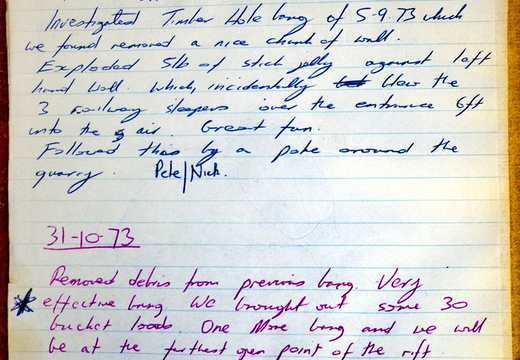 Investigated Timber Hole bang of 5-9.73 which
we found removed a nice chunk of wall.
Exploded 5lb of stick jelly against left
hand wall. Which, incidentally blew the
3 railway sleepers over the entrance 6ft
into the air. Great fun.
Followed this by a poke around the
quarry. Pete/Nick.
31-10-73
Removed debris from previous bang. Very
effective bang We brought out some 30
bucket loads. One More bang and we will
be at the furthest open point of the rift.